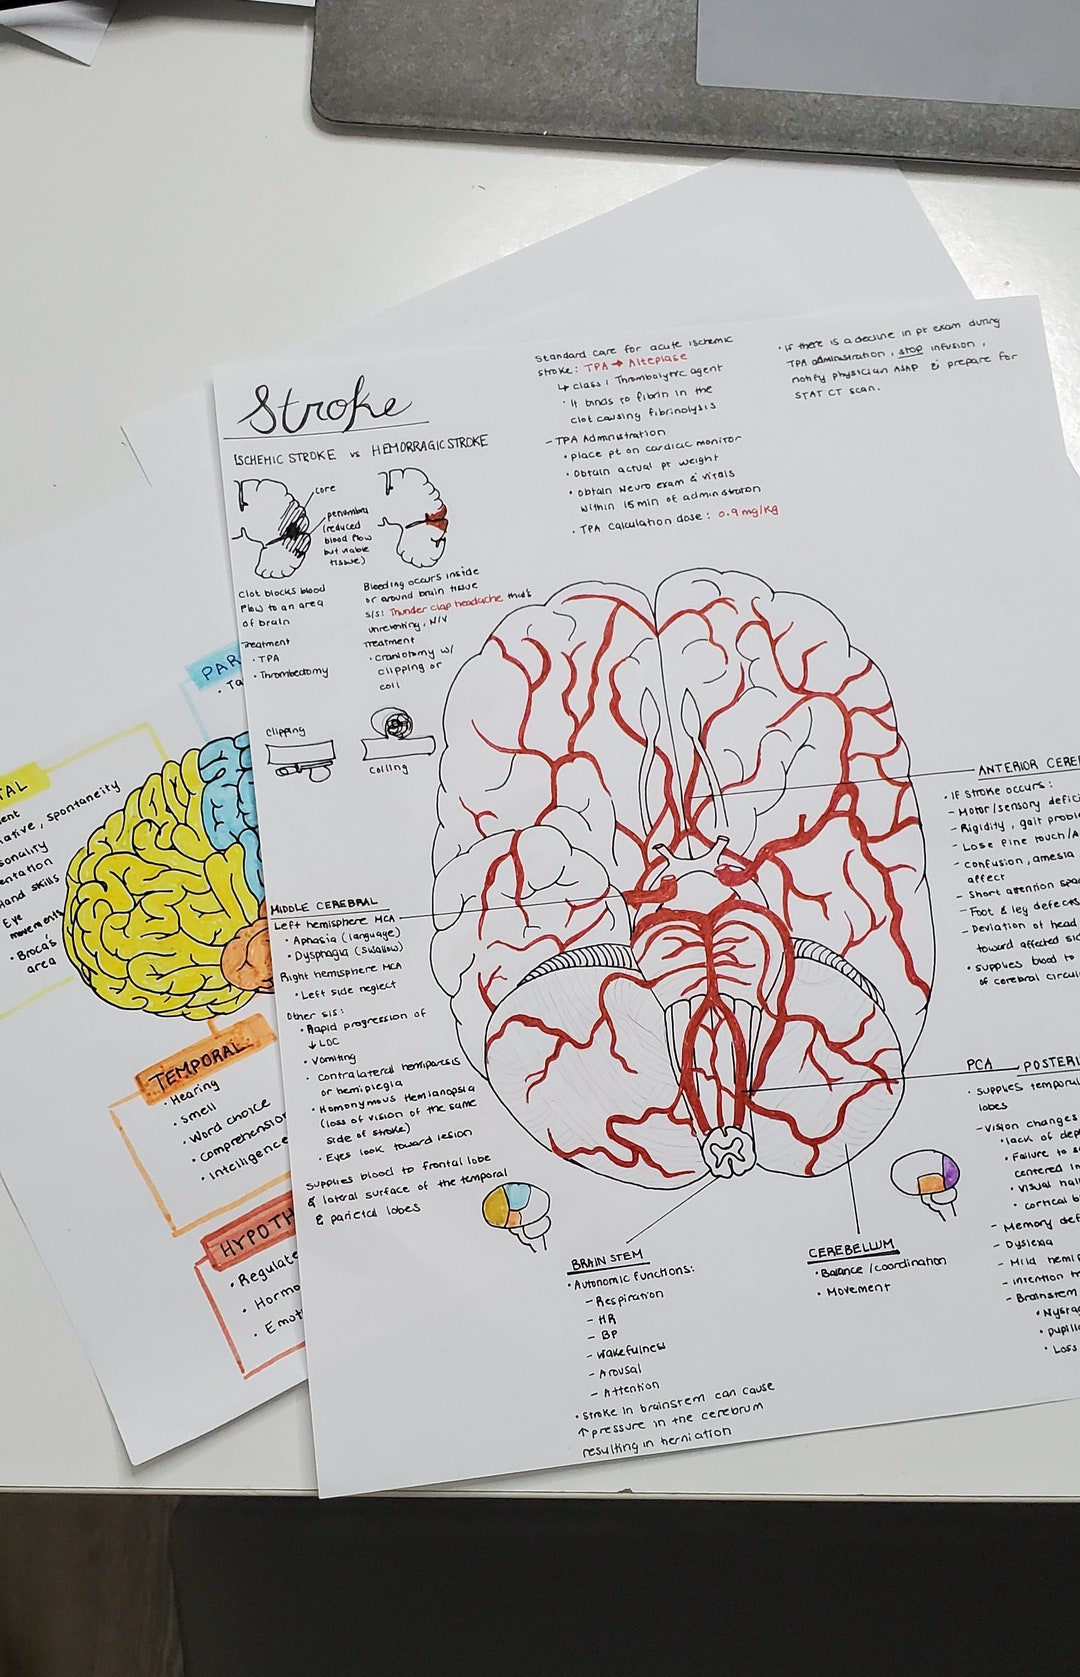 Stroke
ISCHEMIC STROKE vs HEMORRAGIC STROKE
core
penumbra
(reduced
blood flow
but viable
tissue)
Clot blocks blood
flow to an area
of brain
Treatment
• TPA
• Thrombectomy
Bleeding occurs inside
or around brain tissue
S/S: Thunder clap headache that's
unrelenting, N/V
Treatment
• Craniotomy w/
clipping or
coil
Clipping
Coiling
Standard care for acute ischemic
stroke: TPA → Alteplase
↳ Class: Thrombolytic agent
• It binds to fibrin in the
clot causing fibrinolysis
- TPA Administration
• Place pt on cardiac monitor
• Obtain actual pt weight
• Obtain Neuro exam & vitals
within 15 min of administration
• TPA calculation dose: 0.9 mg/kg
• If there is a decline in pt exam during
TPA administration, stop infusion,
notify physician ASAP & prepare for
STAT CT scan.
MIDDLE CEREBRAL
Left hemisphere MCA
• Aphasia (language)
• Dysphagia (swallow)
Right hemisphere MCA
• Left side neglect
Other s/s:
• Rapid progression of
↓ LOC
• Vomiting
• contralateral hemiparesis
or hemiplegia
• Homonymous Hemianopsia
(loss of vision of the same
side of stroke)
• Eyes look toward lesion
Supplies blood to frontal lobe
& lateral surface of the temporal
& parietal lobes
ANTERIOR CERE
• If stroke occurs:
- Motor/sensory defici
- Rigidity, gait proble
- Lose fine touch/
- Confusion, amesia
affect
- Short attention spa
- Foot & leg defects
- Deviation of head
toward affected si
• Supplies blood to
of cerebral circu
PCA, POSTERI
• Supplies temporal
lobes
- Vision changes
• lack of dep
• Failure to s
centered in
• visual hal
• cortical b
- Memory def
- Dyslexia
- Mild hemip
- intention tr
- Brainstem
• Nystag
• pupill
• Loss
BRAIN STEM
• Autonomic Functions:
- Respiration
- HR
- BP
- Wakefulness
- Arousal
- Attention
• Stroke in brainstem can cause
↑ pressure in the cerebrum
resulting in herniation
CEREBELLUM
• Balance/coordination
• Movement
PAR
• Ta
TAL
ment
ative, spontaneity
sonality
entation
Hand skills
Eye
movements
• Broca's
area
TEMPORAL
• Hearing
• Smell
• Word choice
• Comprehension
• Intelligence
HYPOTH
• Regulate
• Hormo
• Emot